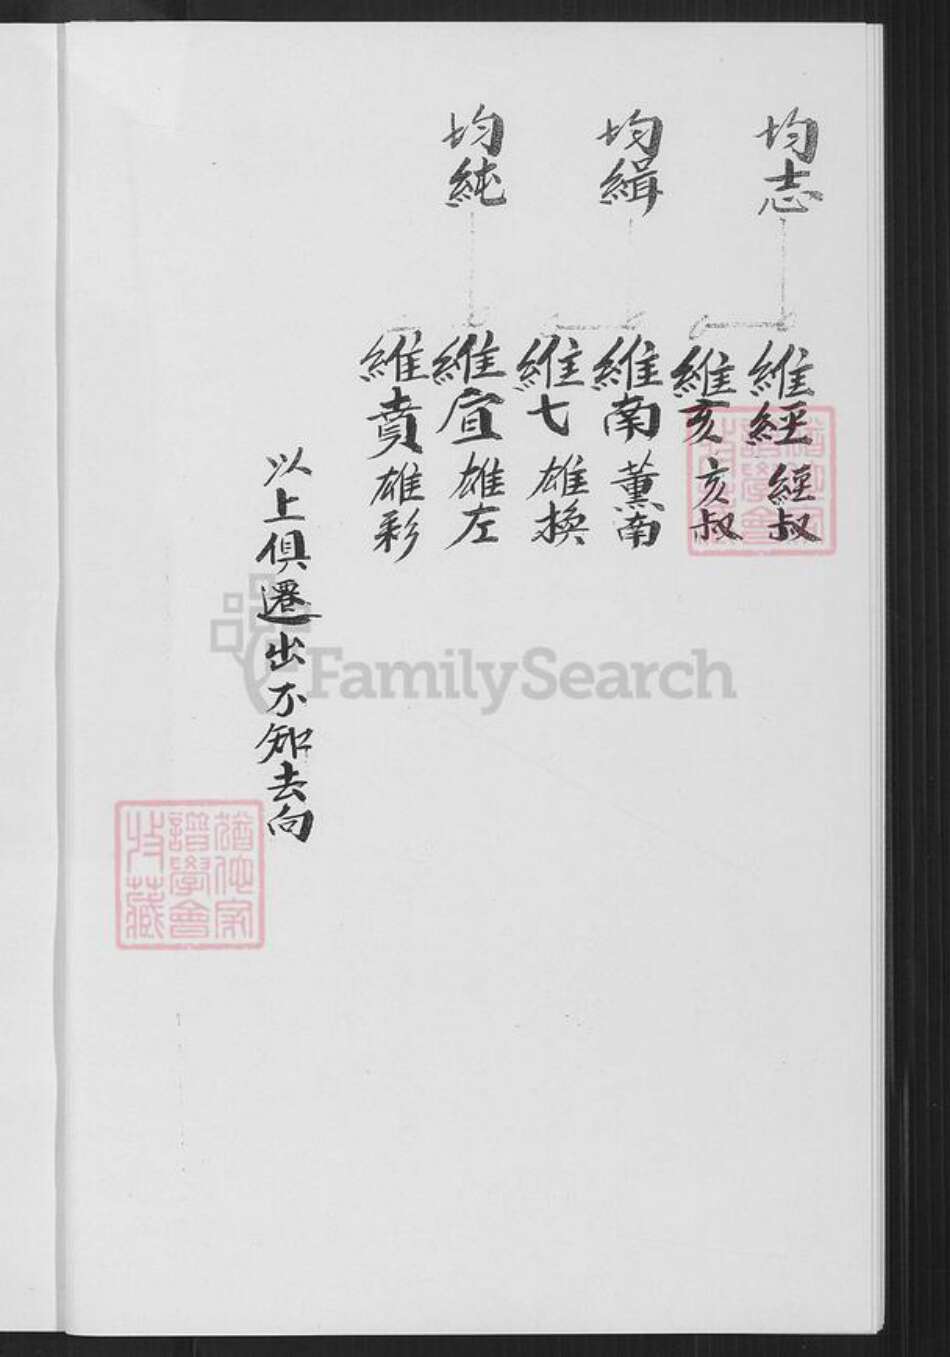 均志
維經 經叔
維亥 亥叔
均緝
維南 薰南
維七 雄換
均純
維宜 雄左
維賁 雄彩
以上俱遷出不知去向
FamilySearch
猶他家
譜學會
收藏
猶他家
譜學會
收藏